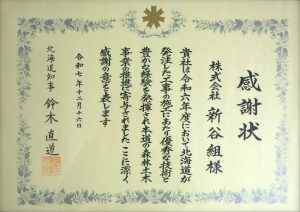 感謝状
株式会社 新谷組様
貴社は令和六年度において北海道が
発注した工事の施工にあたり優秀な技術と
豊かな経験を発揮され本道の森林土木
事業の推進に寄与されました ここに深く
感謝の意を表します
令和七年十二月十六日
北海道知事 鈴木直道